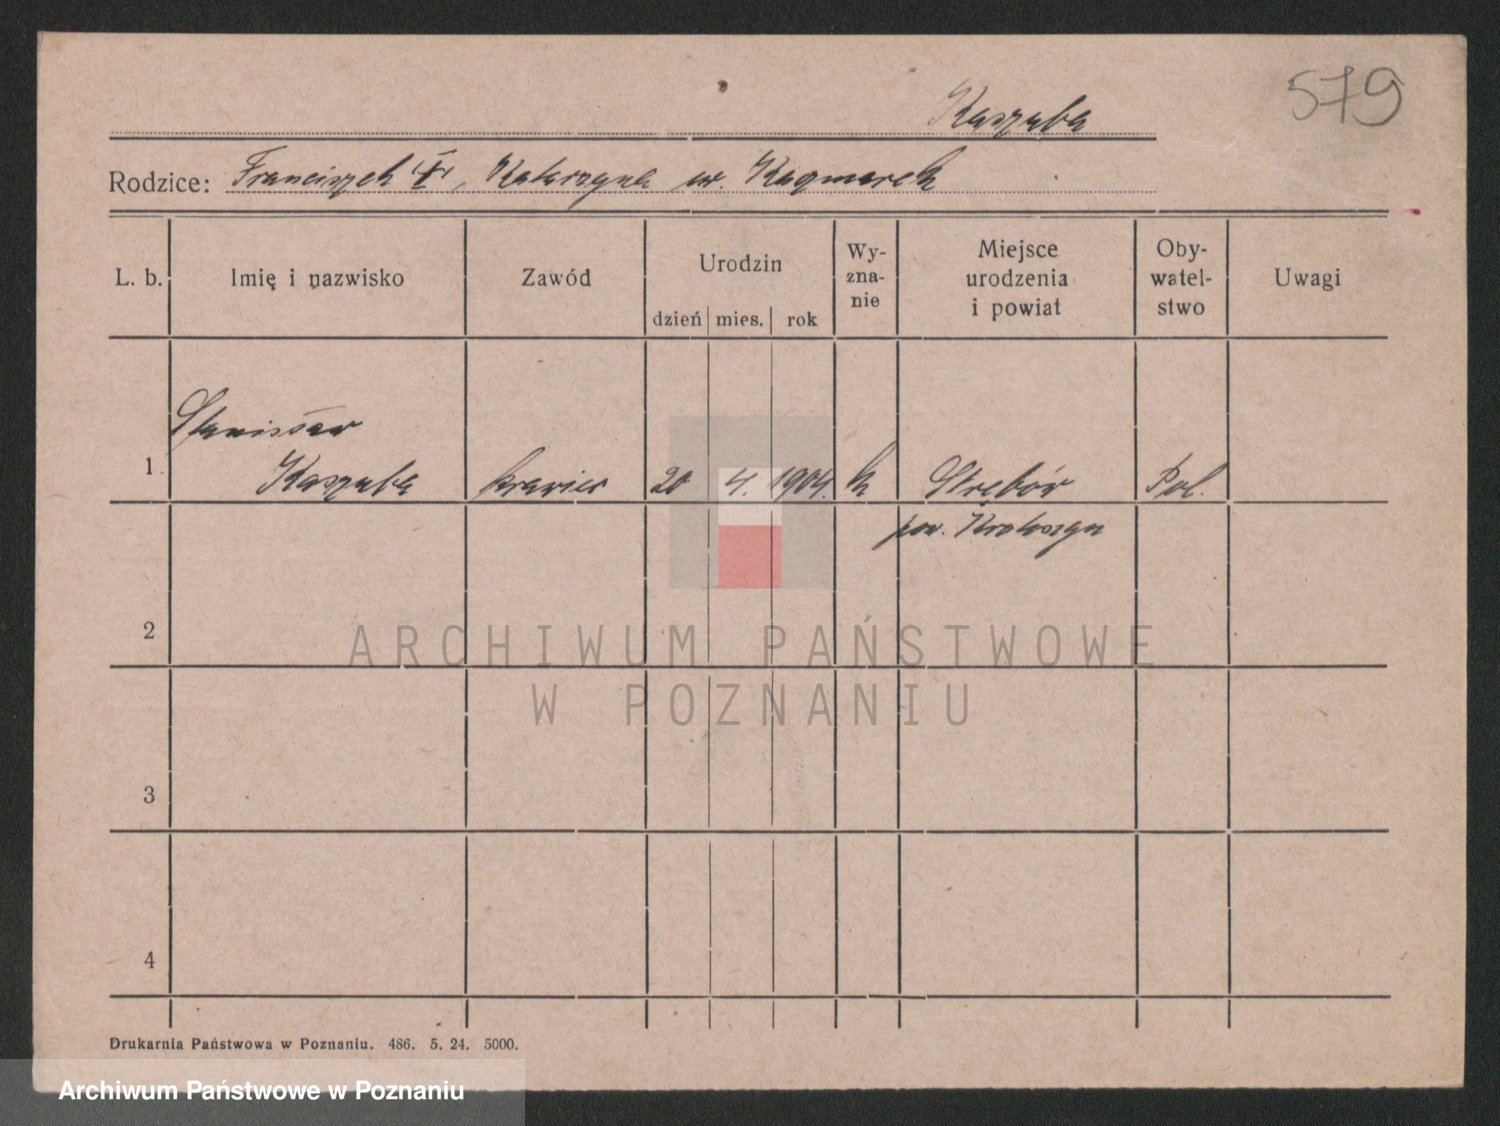 579
Kaszuba
Rodzice: Franciszek "X", Katarzyna ur. Kaczmarek
L. b. Imię i nazwisko Zawód Urodzin Wy-zna-nie Miejsce urodzenia i powiat Oby-watel-stwo Uwagi
dzień mies. rok
Stanisław
1 Kaszuba krawiec 20 4. 1904. k Pol.
pow. Krotoszyn
2
ARCHIWUM PAŃSTWOWE
W POZNANIU
3
4
Drukarnia Państwowa w Poznaniu. 486. 5. 24. 5000.
Archiwum Państwowe w Poznaniu